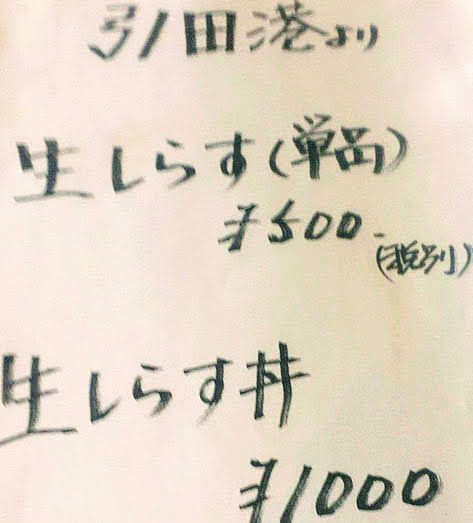 引田港より
生しらす(単品)
¥500-(税別)
生しらす丼
¥1000